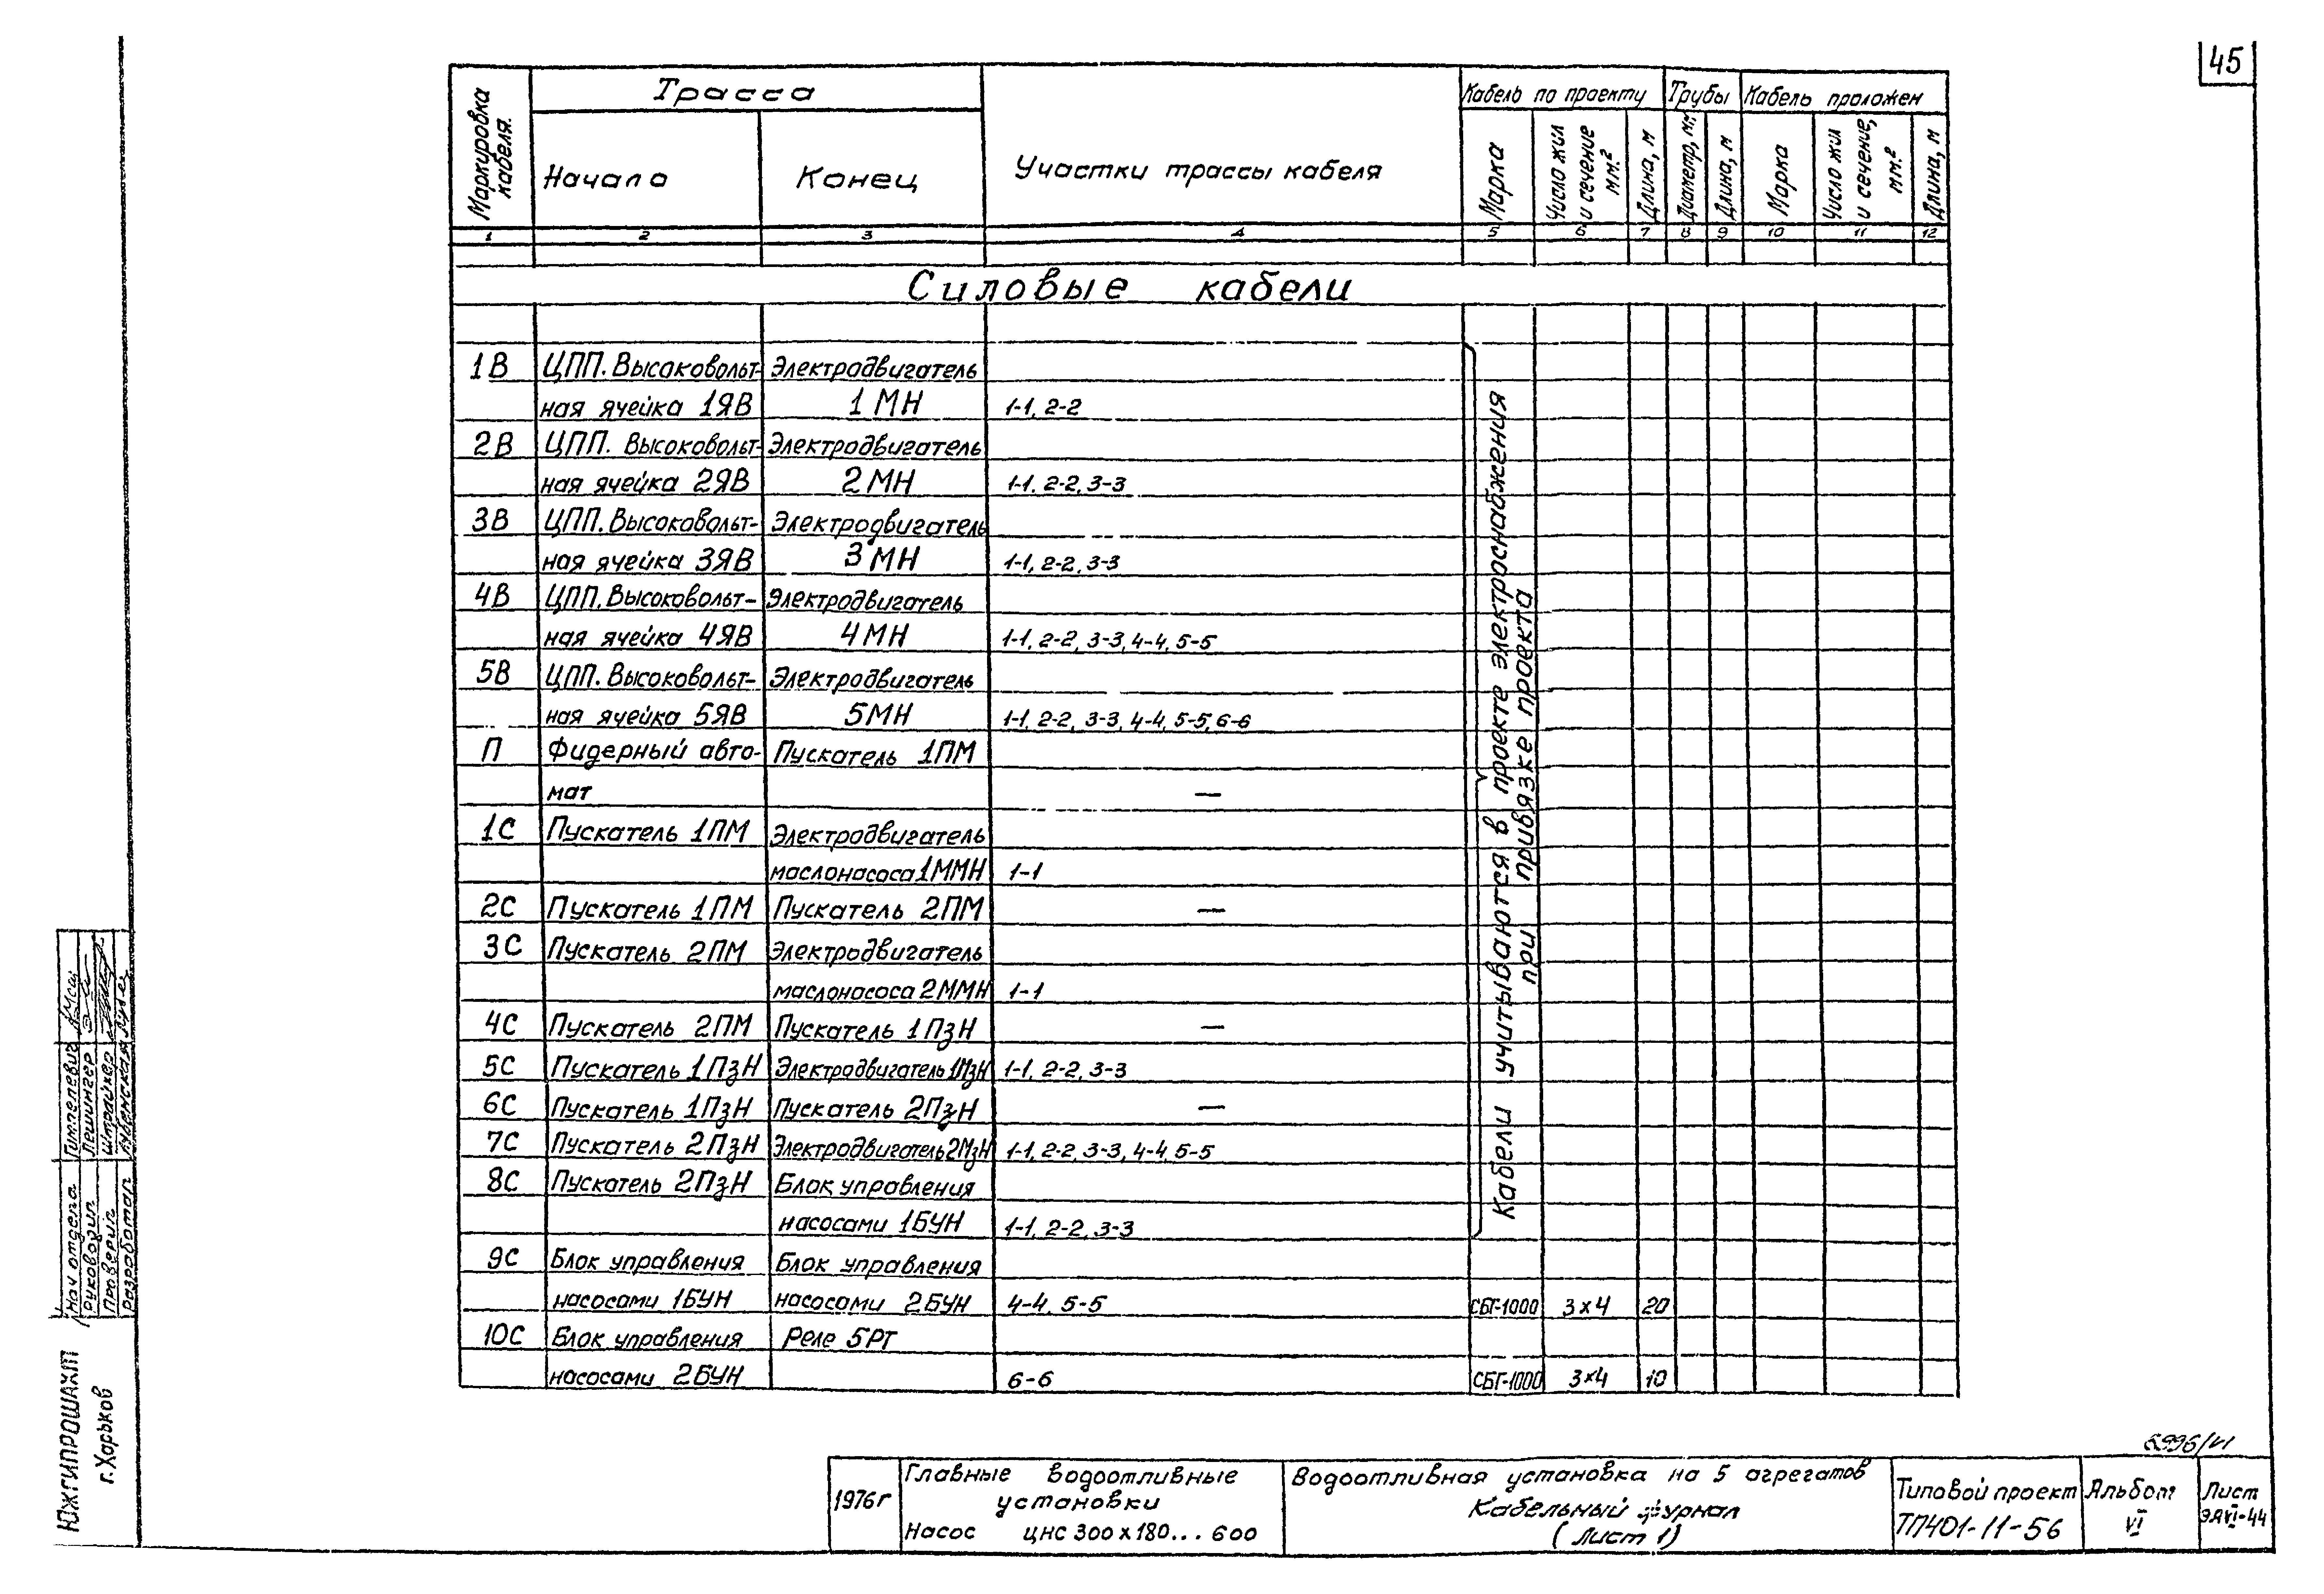 45
Маркировка кабеля.
Трасса
Начало
Конец
Участки трассы кабеля
Кабель по проекту
Трубы
Кабель проложен
Марка
Число жил и сечение мм.²
Длина, м
Диаметр, мм
Длина, м
Марка
Число жил и сечение, мм.²
Длина, м
1 2 3 4 5 6 7 8 9 10 11 12
Силовые кабели
1В ЦПП. Высоковольт- Электродвигатель
ная ячейка 1ЯВ 1МН 1-1, 2-2
2В ЦПП. Высоковольт- Электродвигатель
ная ячейка 2ЯВ 2МН 1-1, 2-2, 3-3
3В ЦПП. Высоковольт- Электродвигатель
ная ячейка 3ЯВ 3МН 1-1, 2-2, 3-3
4В ЦПП. Высоковольт- Электродвигатель
ная ячейка 4ЯВ 4МН 1-1, 2-2, 3-3, 4-4, 5-5
5В ЦПП. Высоковольт- Электродвигатель
ная ячейка 5ЯВ 5МН 1-1, 2-2, 3-3, 4-4, 5-5, 6-6
П Фидерный авто- Пускатель 1ПМ
мат —
1С Пускатель 1ПМ Электродвигатель
маслонасоса 1ММН 1-1
2С Пускатель 1ПМ Пускатель 2ПМ —
3С Пускатель 2ПМ Электродвигатель
маслонасоса 2ММН 1-1
4С Пускатель 2ПМ Пускатель 1ПзН —
5С Пускатель 1ПзН Электродвигатель 1МзН 1-1, 2-2, 3-3
6С Пускатель 1ПзН Пускатель 2ПзН —
7С Пускатель 2ПзН Электродвигатель 2МзН 1-1, 2-2, 3-3, 4-4, 5-5
8С Пускатель 2ПзН Блок управления
насосами 1БУН 1-1, 2-2, 3-3
9С Блок управления Блок управления
насосами 1БУН насосами 2БУН 4-4, 5-5 СБГ-1000 3×4 20
10С Блок управления Реле 5РТ
насосами 2БУН 6-6 СБГ-1000 3×4 10
Кабели учитываются в проекте электроснабжения
при привязке проекта
Нач отдела
Руководил Лешингер
Проверил Штрайхер
Разработал
ЮЖГИПРОШАХТ
г. Харьков
1976г
Главные водоотливные
установки
Насос ЦНС 300х180...600
Водоотливная установка на 5 агрегатов
Кабельный журнал
(Лист 1)
Типовой проект
ТП401-11-56
Альбом
VI
Лист
ЭАVI-44